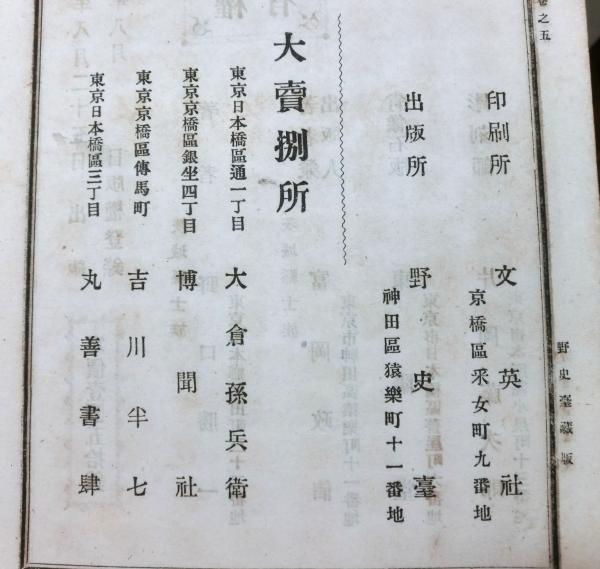 卷之五
野史臺藏版
印刷所
文英社
京橋區采女町九番地
出版所
野史臺
神田區猿樂町十一番地
大賣捌所
東京日本橋區通一丁目 大倉孫兵衛
東京京橋區銀坐四丁目 博聞社
東京京橋區傳馬町 吉川半七
東京日本橋區三丁目 丸善書肆